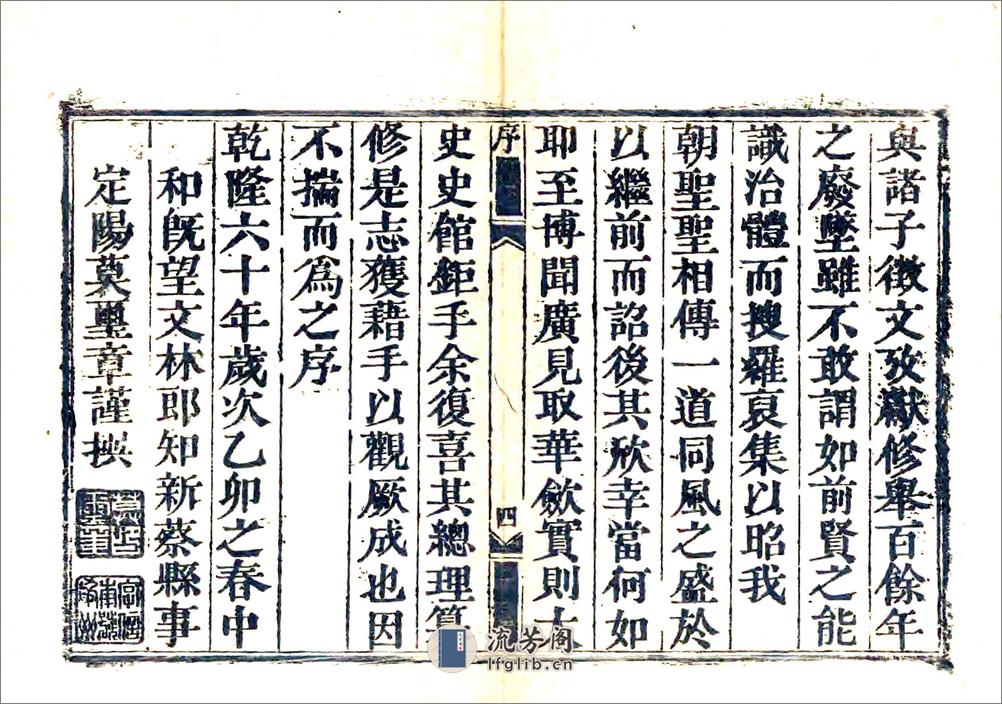 與諸子徵文攷獻修舉百餘年
之廢墜雖不敢謂如前賢之能
識治體而搜羅裒集以昭我
朝聖聖相傳一道同風之盛於
以繼前而詔後其欣幸當何如
耶至博聞廣見取華斂實則太
序
四
史史館鉅手余復喜其總理篡
修是志獲藉手以觀厥成也因
不揣而爲之序
乾隆六十年歲次乙卯之春中
和旣望文林郎知新蔡縣事
定陽莫璽章謹撰
流芳阁
lfglib.cn